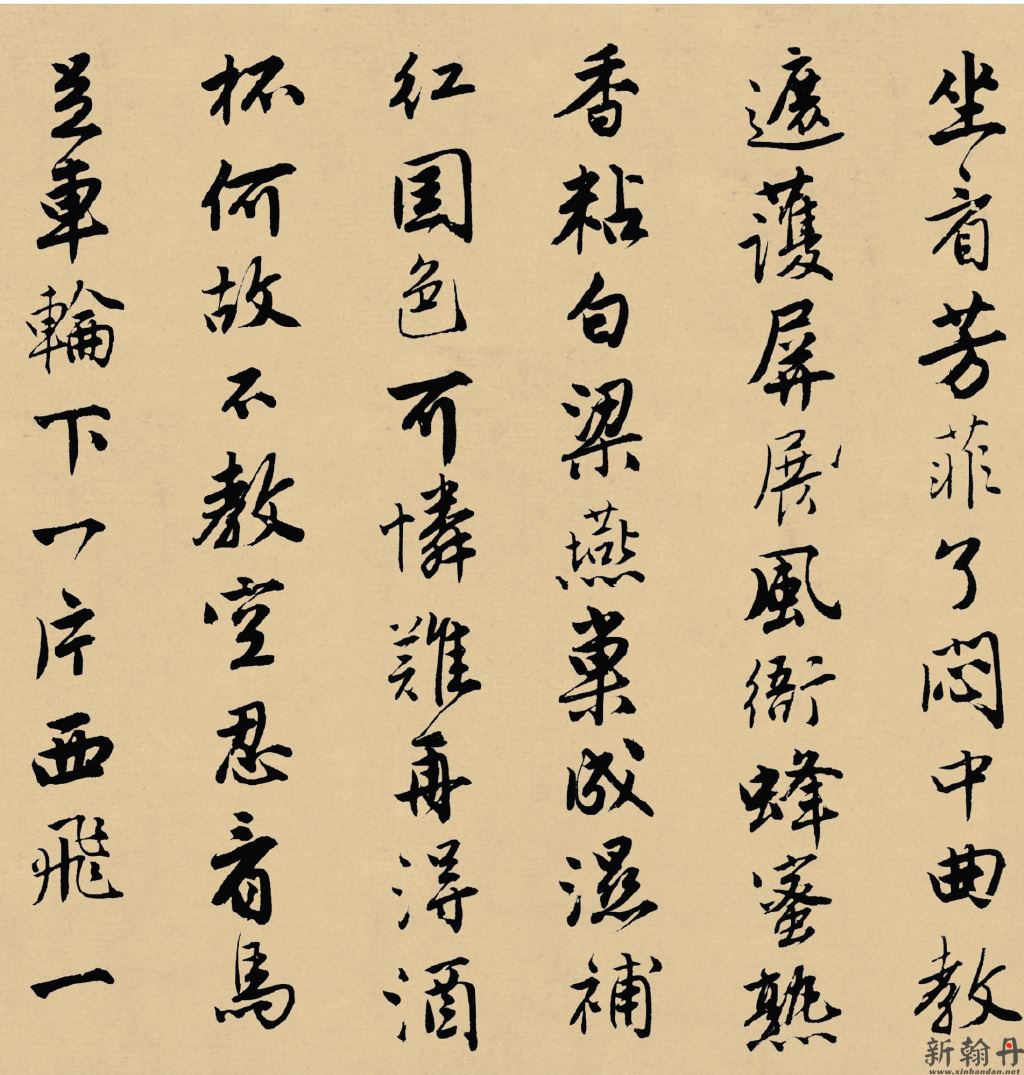 坐看芳菲了悶中曲教
遮護屏展風衙蜂蜜熟
香粘白梁燕巢成濕補
紅国色可憐難再得酒
杯何故不教空忍看馬
足車輪下一片西飛一
新翰丹
www.xinhandan.net